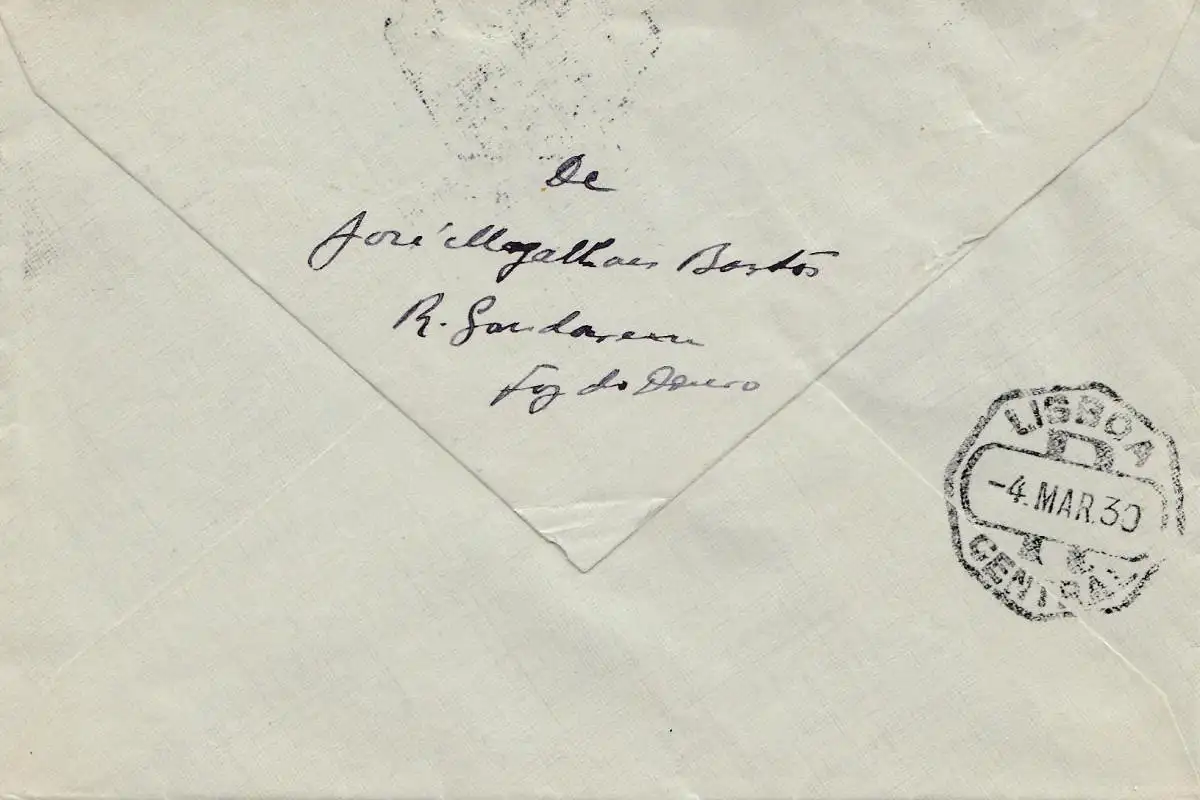 De
José Magalhães Bastos
R. Gondarem
Foz do Douro
LISBOA
-4.MAR.30
CENTRAL